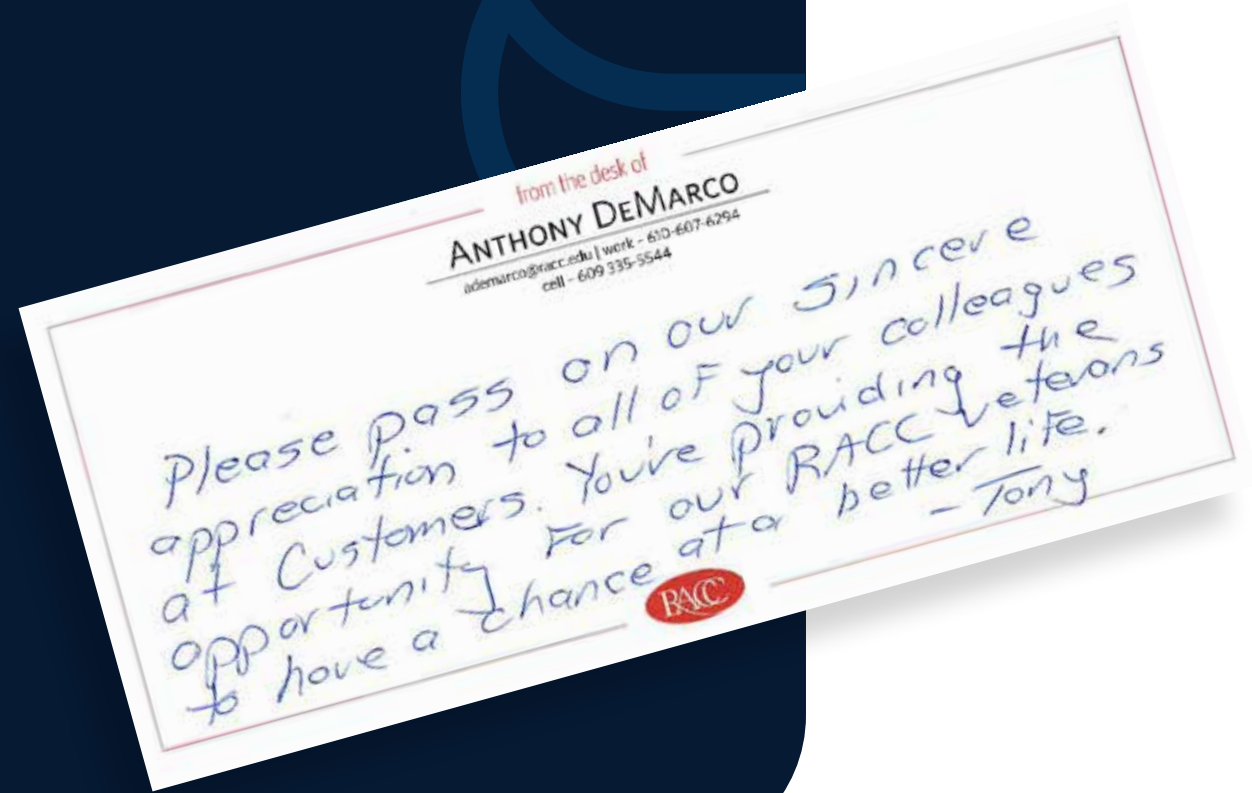 from the desk of
ANTHONY DEMARCO
ademarco@racc.edu | work - 610-607-6294
cell - 609 335-5544
Please pass on our sincere
appreciation to all of your colleagues
at Customers. You've providing the
opportunity For our RACC veterans
to have a chance at a better life.
- Tony
RACC